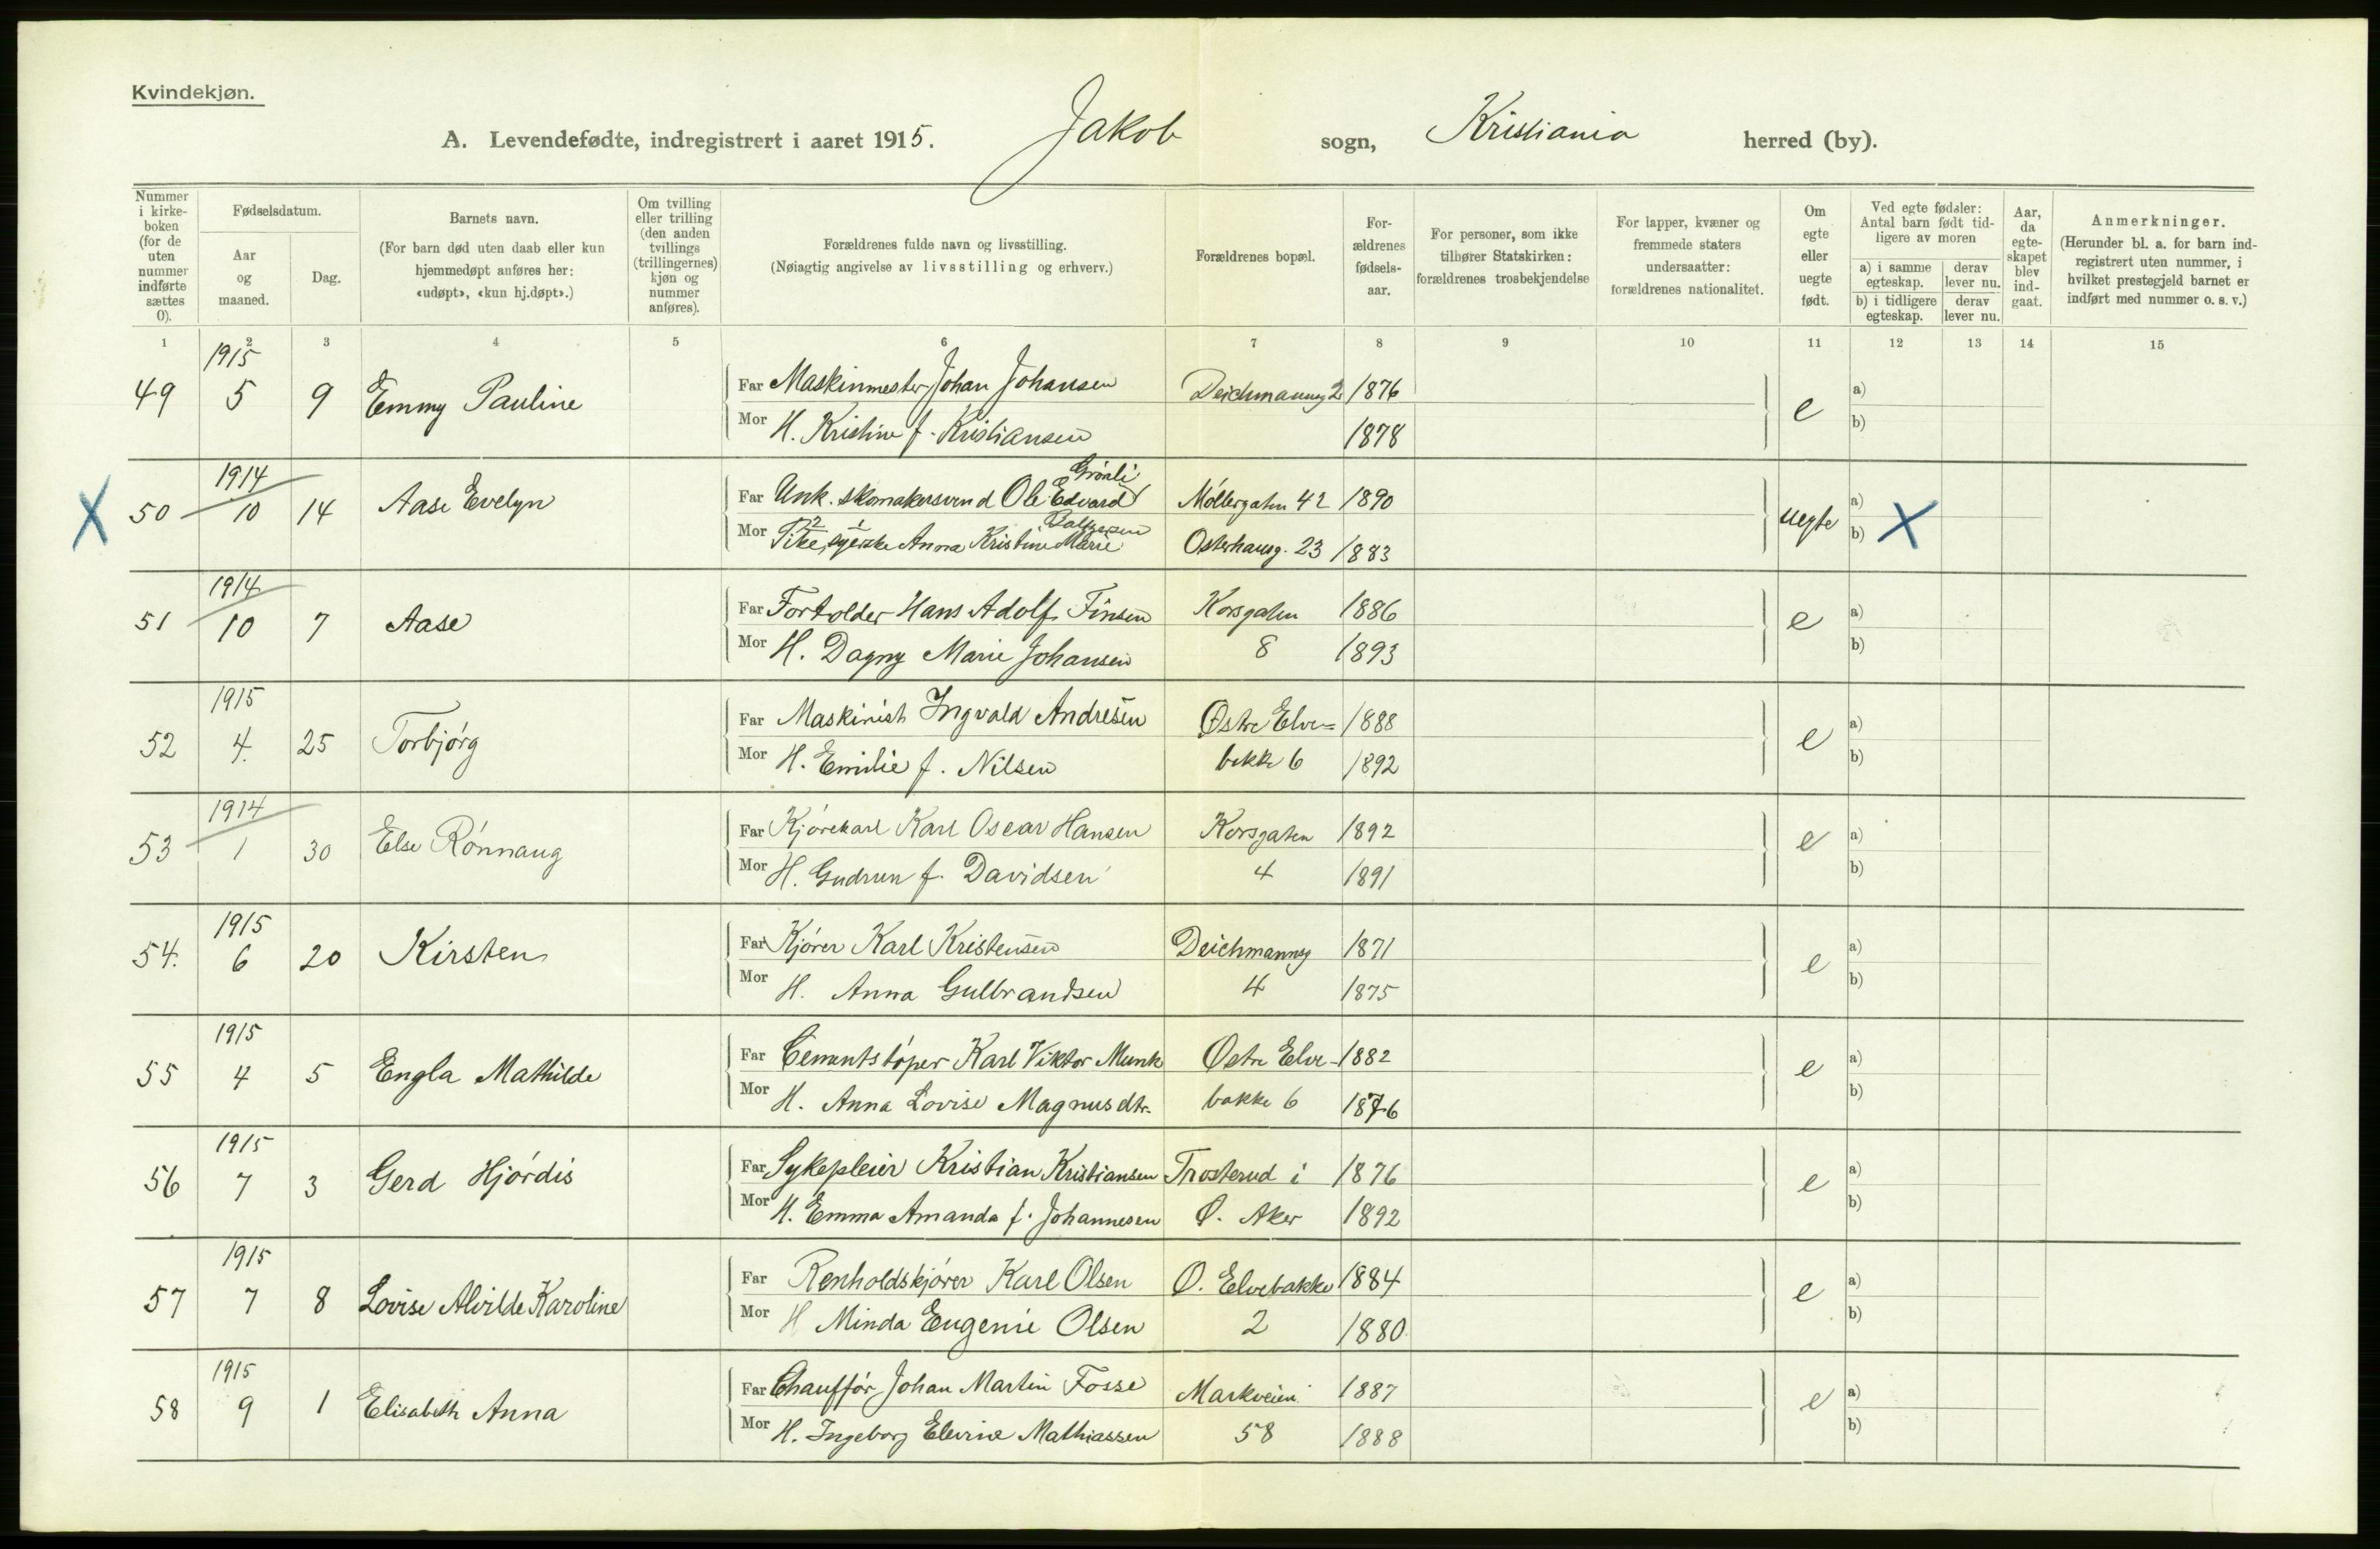 Kvindekjøn.
A. Levendefødte, indregistrert i aaret 1915. Jakob sogn, Kristiania herred (by).
Nummer i kirke-boken (for de uten nummer indførte sættes 0).
Fødselsdatum.
Aar og maaned.
Dag.
Barnets navn.
(For barn død uten daab eller kun hjemmedøpt anføres her: «udøpt», «kun hj.døpt».)
Om tvilling eller trilling (den anden tvillings (trillingernes) kjøn og nummer anføres).
Forældrenes fulde navn og livsstilling.
(Nøiagtig angivelse av livsstilling og erhverv.)
Forældrenes bopæl.
For-ældrenes fødsels-aar.
For personer, som ikke tilhører Statskirken: forældrenes trosbekjendelse
For lapper, kvæner og fremmede staters undersaatter: forældrenes nationalitet.
Om egte eller uegte født.
Ved egte fødsler: Antal barn født tid-ligere av moren
a) i samme egteskap. derav lever nu.
b) i tidligere egteskap. derav lever nu.
Aar, da egte-skapet blev ind-gaat.
Anmerkninger.
(Herunder bl. a. for barn ind-registrert uten nummer, i hvilket prestegjeld barnet er indført med nummer o. s. v.)
1 2 3 4 5 6 7 8 9 10 11 12 13 14 15
1915
49 5 9 Emmy Pauline Far Maskinmester Johan Johansen Deichmannsg 2 1876 e a)
Mor H. Kristine f. Kristiansen 1878 b)
1914 Grönli
X 50 10 14 Aase Evelyn Far Unk. skomakersvend Ole Edvard Möllergaten 42 1890 uegte a)
Mor Pike, syerske Anna Kristine Marie Osterhausg. 23 1883 b) X
1914
51 10 7 Aase Far Fortolder Hans Adolf Finsen Korsgaten 1886 e a)
Mor H. Dagny Marie Johansen 8 1893 b)
1915
52 4. 25 Torbjörg Far Maskinist Ingvald Andresen Østre Elve= 1888 e a)
Mor H. Emilie f. Nilsen bakke 6 1892 b)
1914
53 1 30 Else Rönnaug Far Kjörekarl Karl Oscar Hansen Korsgaten 1892 e a)
Mor H. Gudrun f. Davidsen 4 1891 b)
1915
54. 6 20 Kirsten Far Kjörer Karl Kristensen Deichmannsg 1871 e a)
Mor H. Anna Gulbrandsen 4 1875 b)
1915
55 4 5 Engla Mathilde Far Cementstöper Karl Viktor Munk Östre Elve- 1882 e a)
Mor H. Anna Lovise Magnusdtr. bakke 6 1876 b)
1915
56 7 3 Gerd Hjördis Far Sykepleier Kristian Kristiansen Trosterud i 1876 e a)
Mor H. Emma Amanda f. Johannesen Ø. Aker 1892 b)
1915
57 7 8 Lovise Alvilde Karoline Far Renholdskjörer Karl Olsen Ø. Elvebakke 1884 e a)
Mor H Minda Eugenie Olsen 2 1880 b)
1915
58 9 1 Elisabeth Anna Far Chaufför Johan Martin Fosse Markveien 1887 e a)
Mor H. Ingeborg Elevine Mathiassen 58 1888 b)